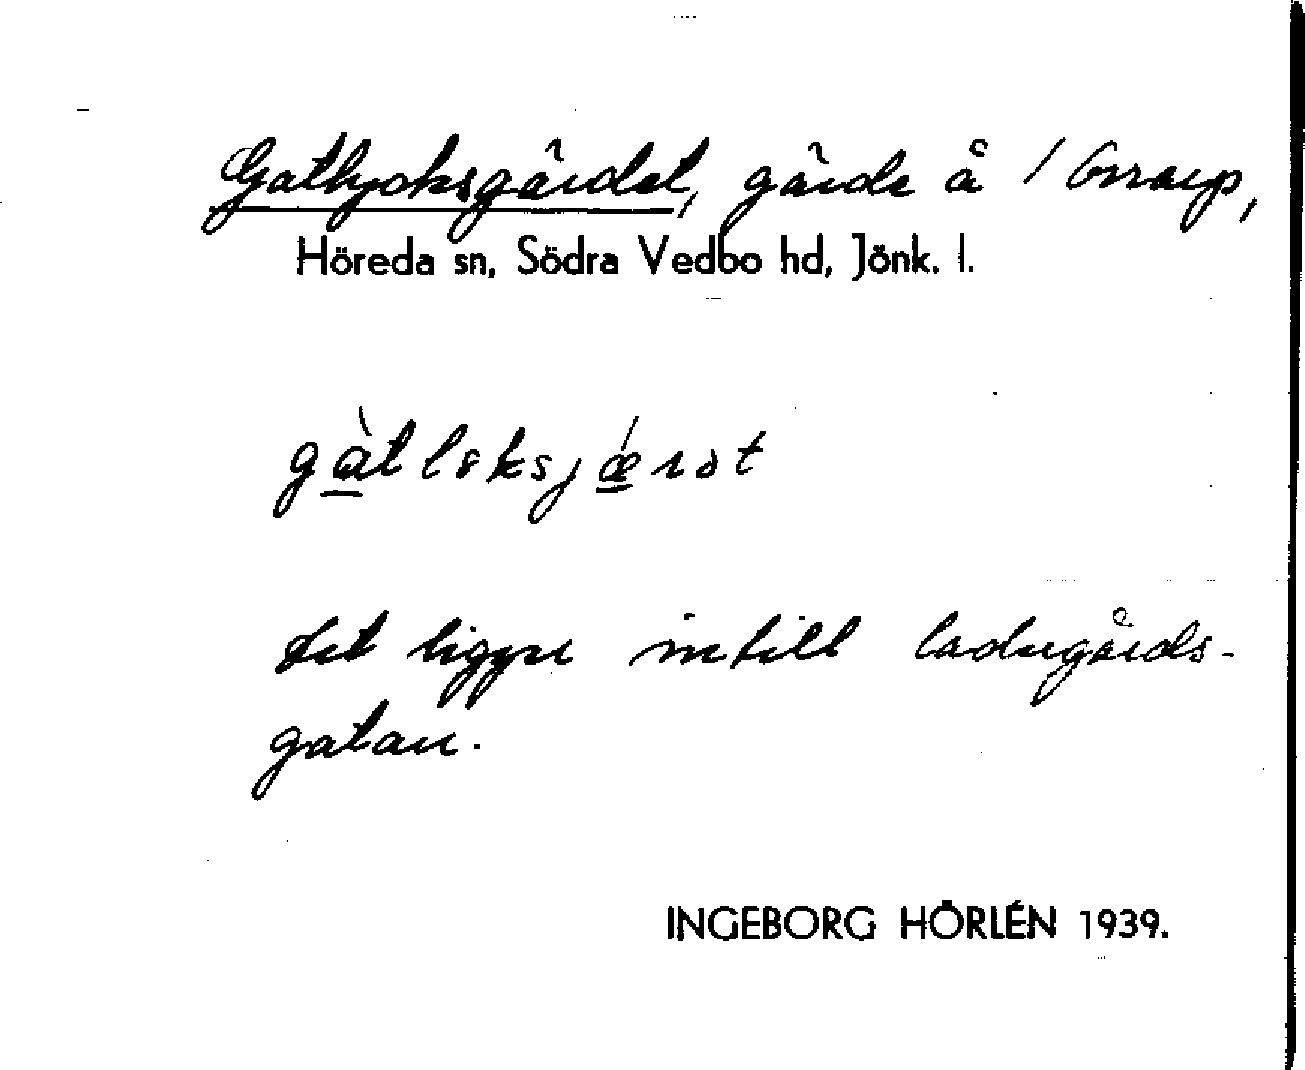 Gatlyoksgärdet, gärde å 1 Gnarp,
Höreda sn, Södra Vedbo hd, Jönk. l.
det ligger intill ladugårds-
gatan.
INGEBORG HÖRLÉN 1939.